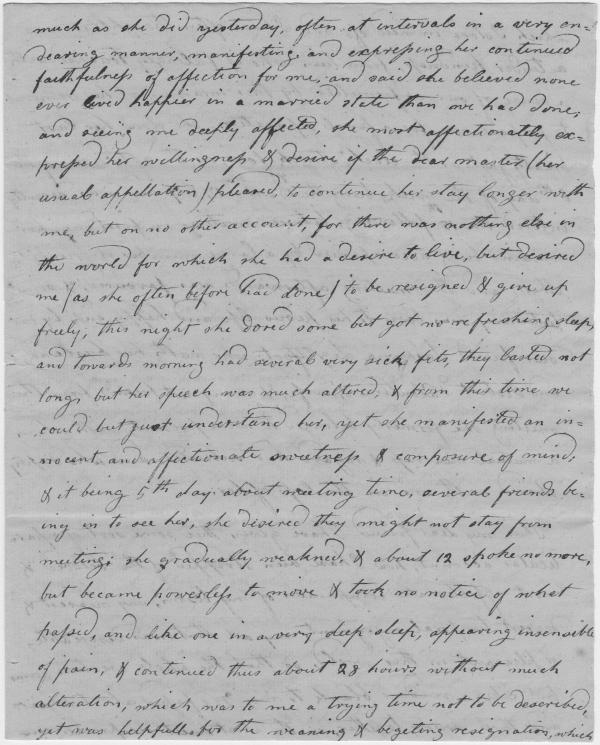 much as she did yesterday, often at intervals in a very en=
dearing manner, manifesting, and expressing her continued
faithfulness of affection for me, and said she believed none
ever lived happier in a married state than we had done,
and seeing me deeply affected, she most affectionately ex=
pressed her willingness & desire if the dear master (her
usual appellation) pleased, to continue her stay longer with
me, but on no other account, for there was nothing else in
the world for which she had a desire to live, but desired
me (as she often before had done) to be resigned & give up
freely, this night she dozed some but got no refreshing sleep,
and towards morning had several very sick fits, they lasted not
long, but her speech was much altered, & from this time we
could but just understand her, yet she manifested an in=
nocent and affictionate sweetness & composure of mind,
& it being 5th day about meeting time, several friends be=
ing in to see her, she disired they might not stay from
meeting; she gradually weakned, & about 12 spoke no more,
but became powerless to move & took no notice of what
passed, and like one in a very deep sleep, appearing insensible
of pain, & continued thus about 28 hours without much
alteration, which was to me a trying time not to be described,
yet was helpfull for the weaning & begeting resignation, which